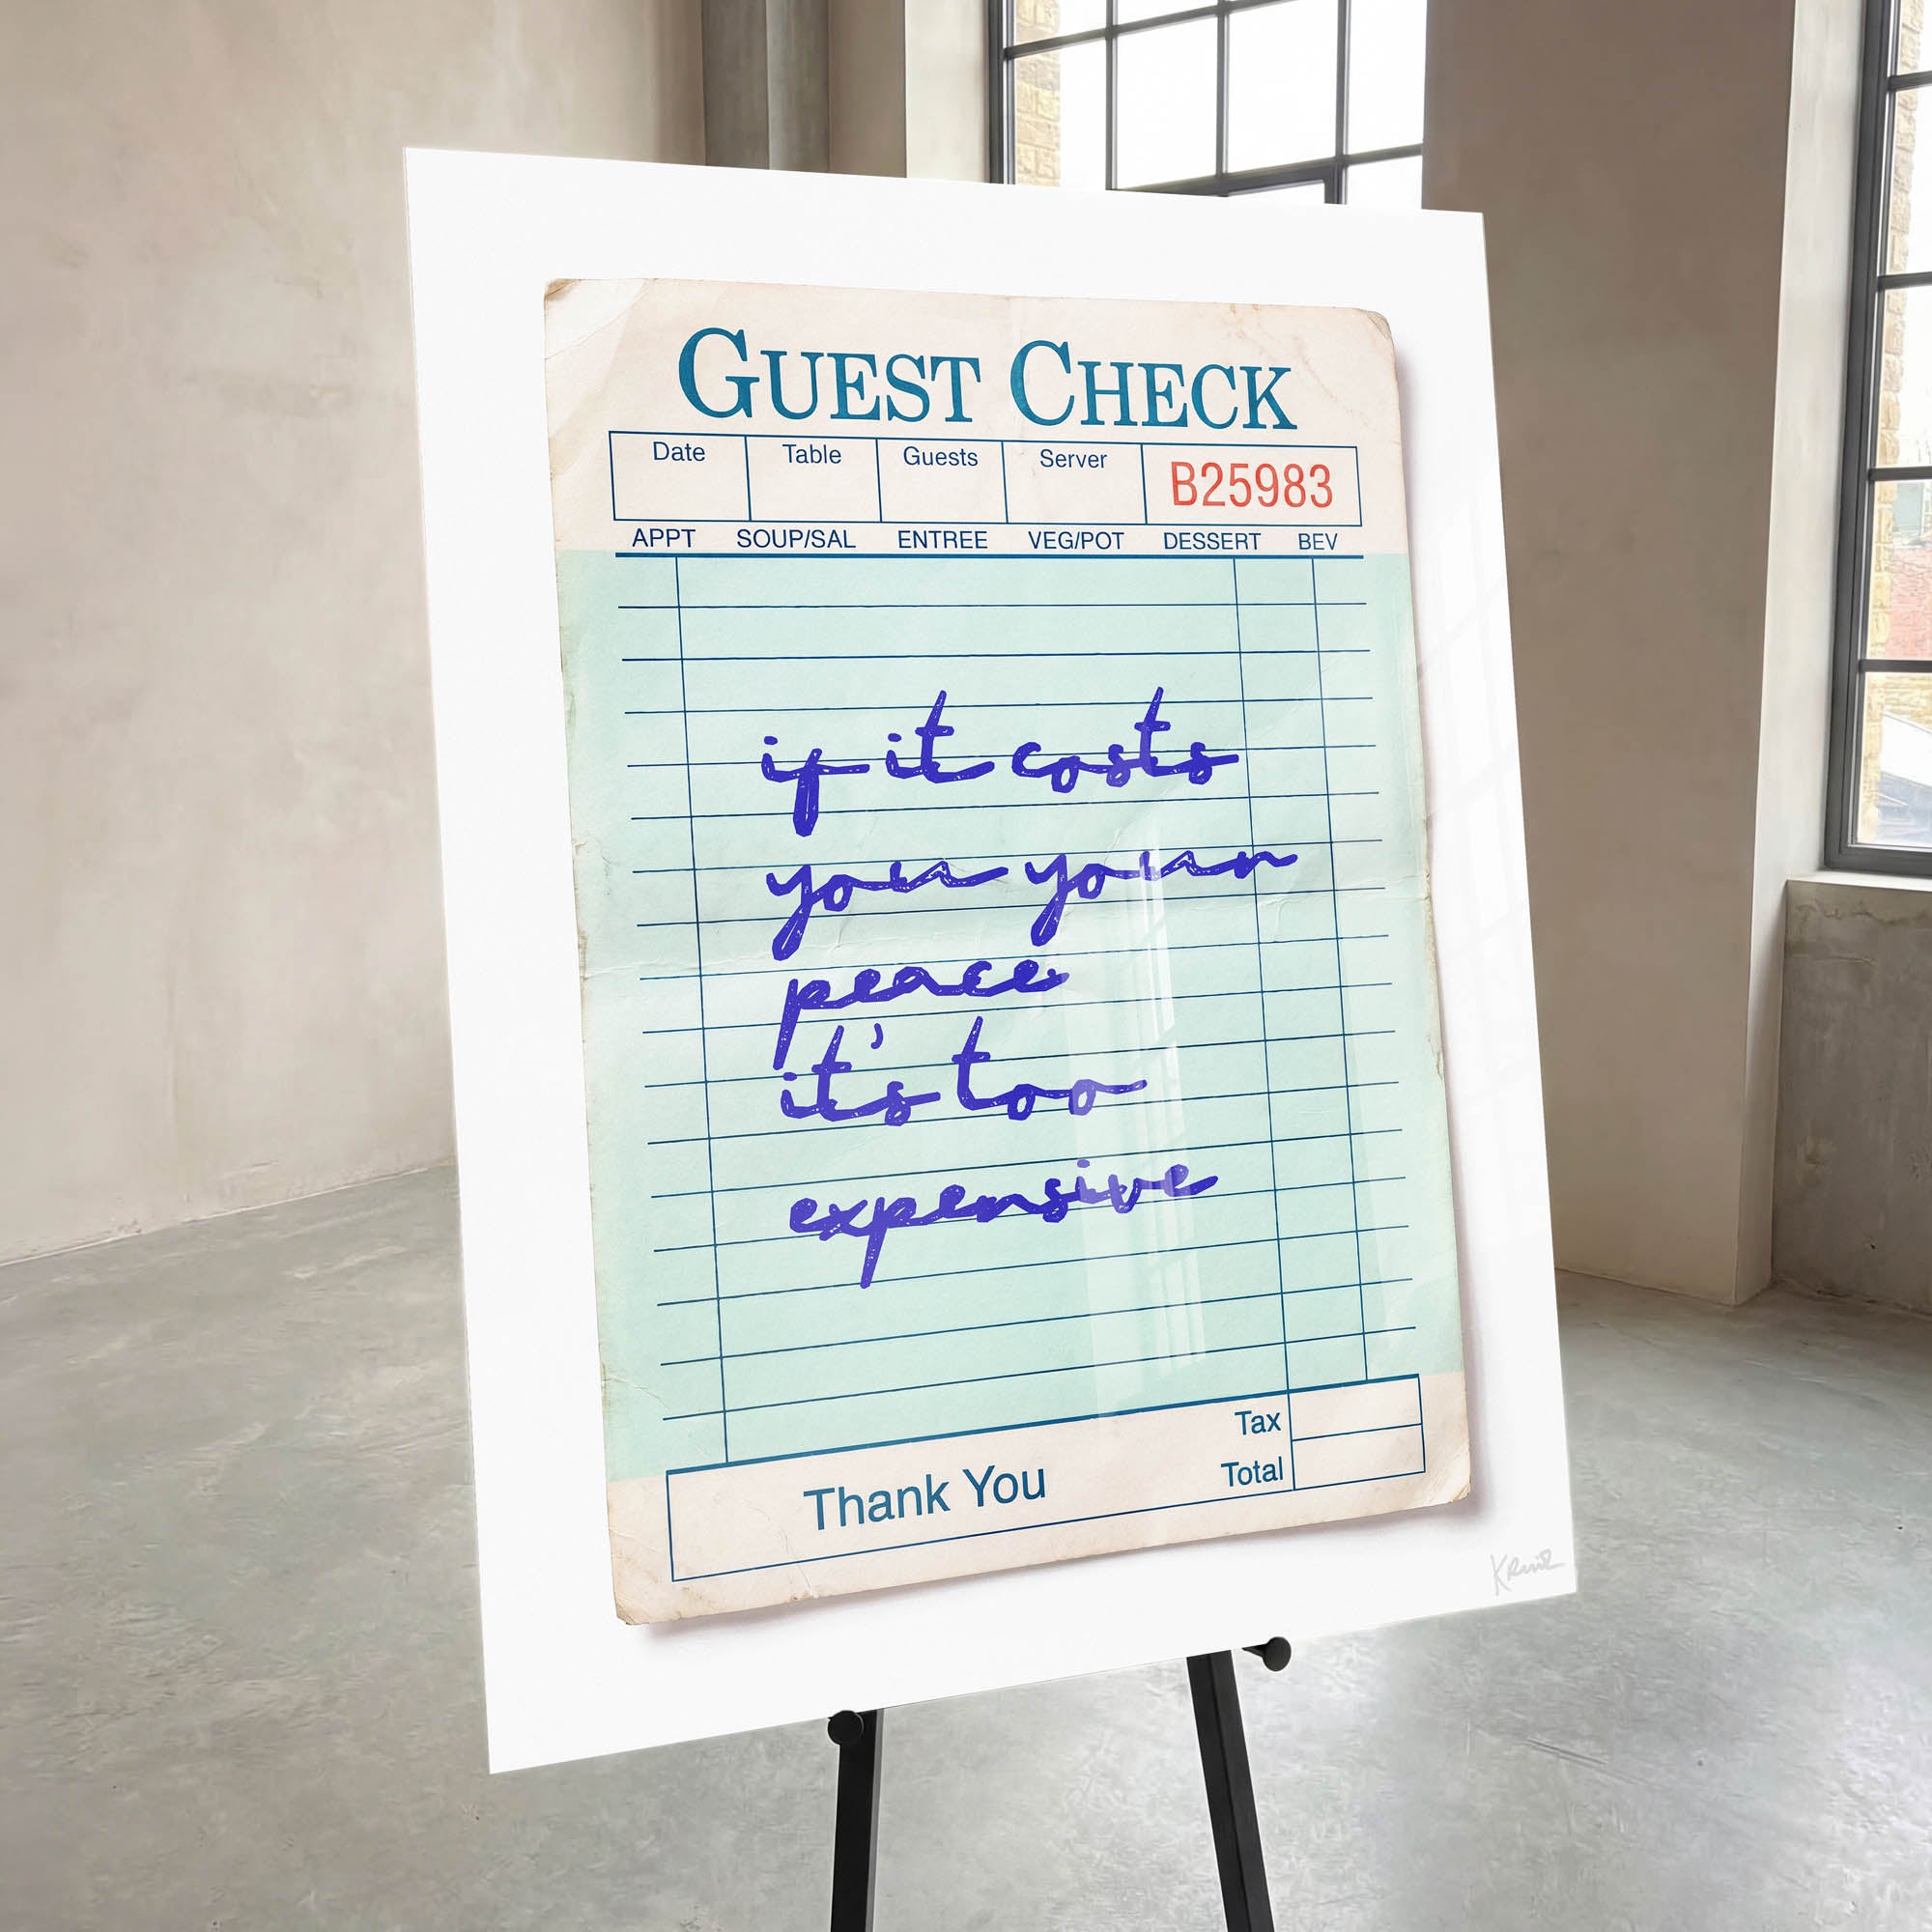 GUEST CHECK
Date Table Guests Server B25983
APPT SOUP/SAL ENTREE VEG/POT DESSERT BEV
if it costs
you your
peace
it's too
expensive
Tax
Thank You Total